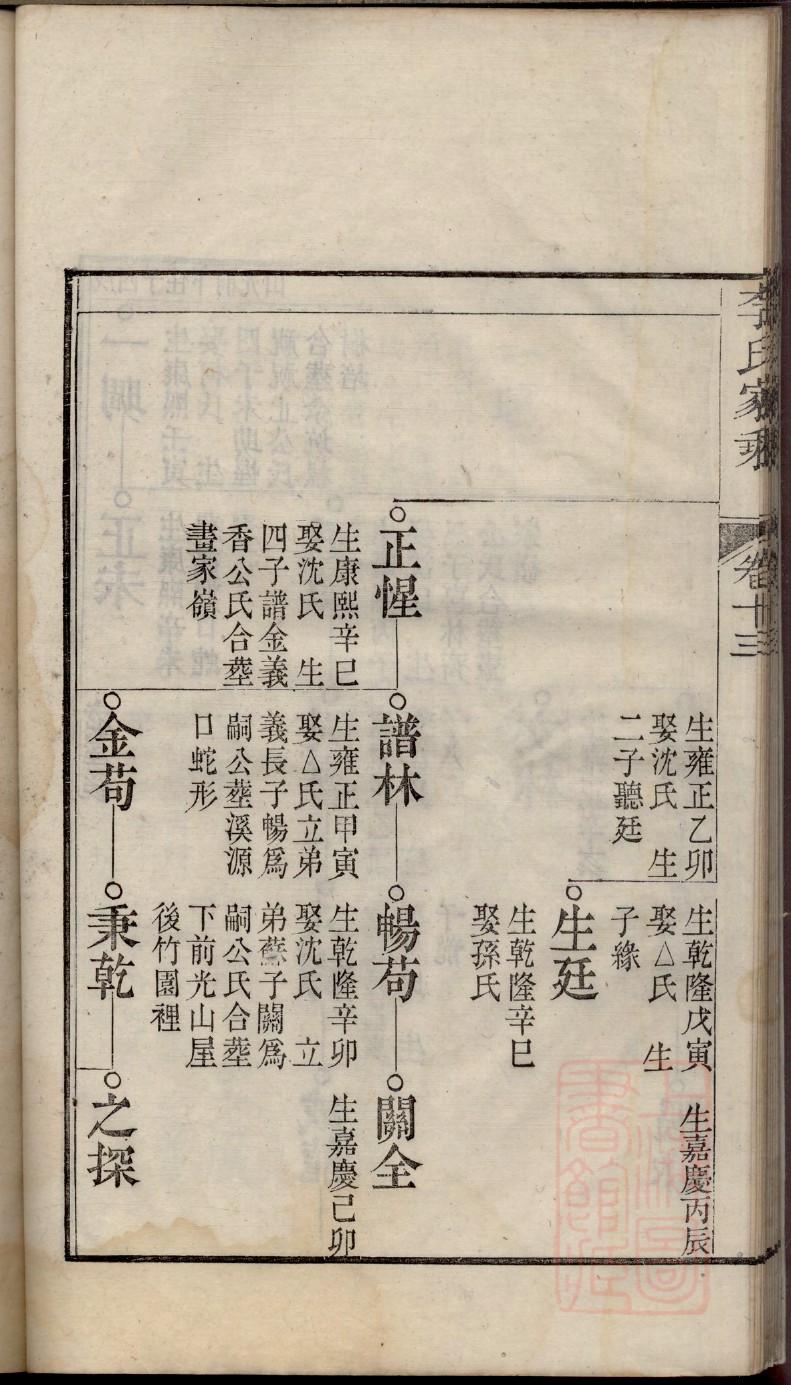 李氏家乘
卷十三
生雍正乙卯
娶沈氏 生
二子聽廷
生乾隆戊寅
娶△氏 生
子緣
生嘉慶丙辰
生廷
生乾隆辛巳
娶孫氏
正惺
生康熙辛巳
娶沈氏 生
四子譜金義
香公氏合塟
畫家嶺
譜林
生雍正甲寅
娶△氏立弟
義長子暢爲
嗣公塟溪源
口蛇形
暢苟
生乾隆辛卯
娶沈氏 立
弟蘇子關爲
嗣公氏合塟
下前光山屋
後竹園裡
關全
生嘉慶己卯
金苟
秉乾
之探